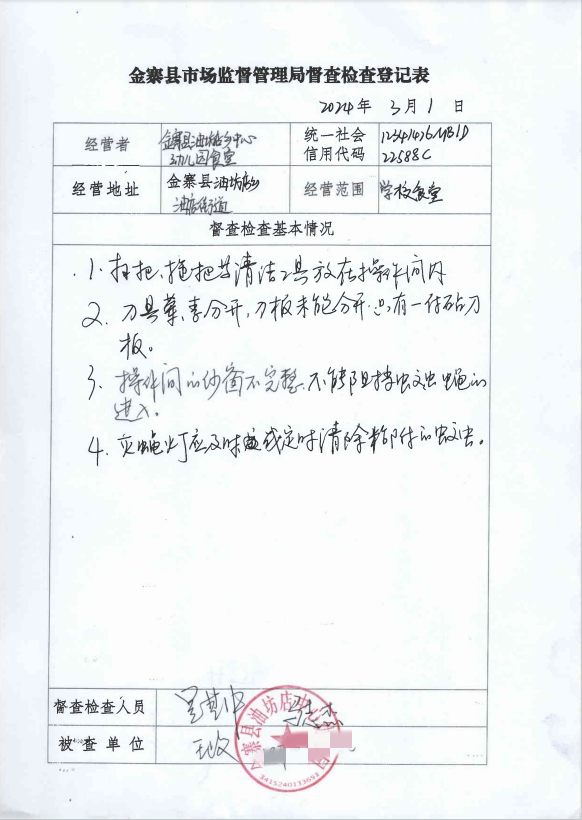 金寨县市场监督管理局督查检查登记表
2024年 3月 1日
经营者 金寨县油坊店乡中心
幼儿园食堂
统一社会
信用代码
12341426MB1D
22588C
经营地址 金寨县油坊店乡
油店街道
经营范围 学校食堂
督查检查基本情况
1. 扫把、拖把等清洁工具放在操作间内
2. 刀具荤素分开,刀板未能分开.只有一付砧刀
板。
3. 操作间的纱窗不完整,不能阻挡蚊虫蝇的
进入。
4. 灭蝇灯应及时或定时清除粘附的蚊虫。
督查检查人员
被查单位
寨县油坊店
3415240133653